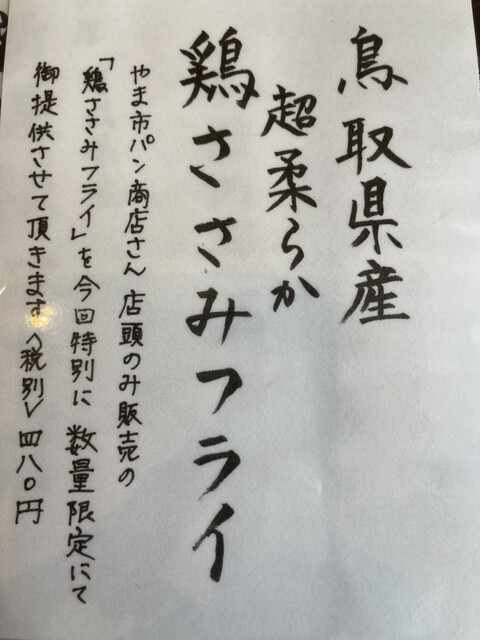 鳥取県産
超柔らか
鶏ささみフライ
やま市パン商店さん 店頭のみ販売の
「鶏ささみフライ」を今回特別に 数量限定にて
御提供させて頂きます〈税別〉四八〇円